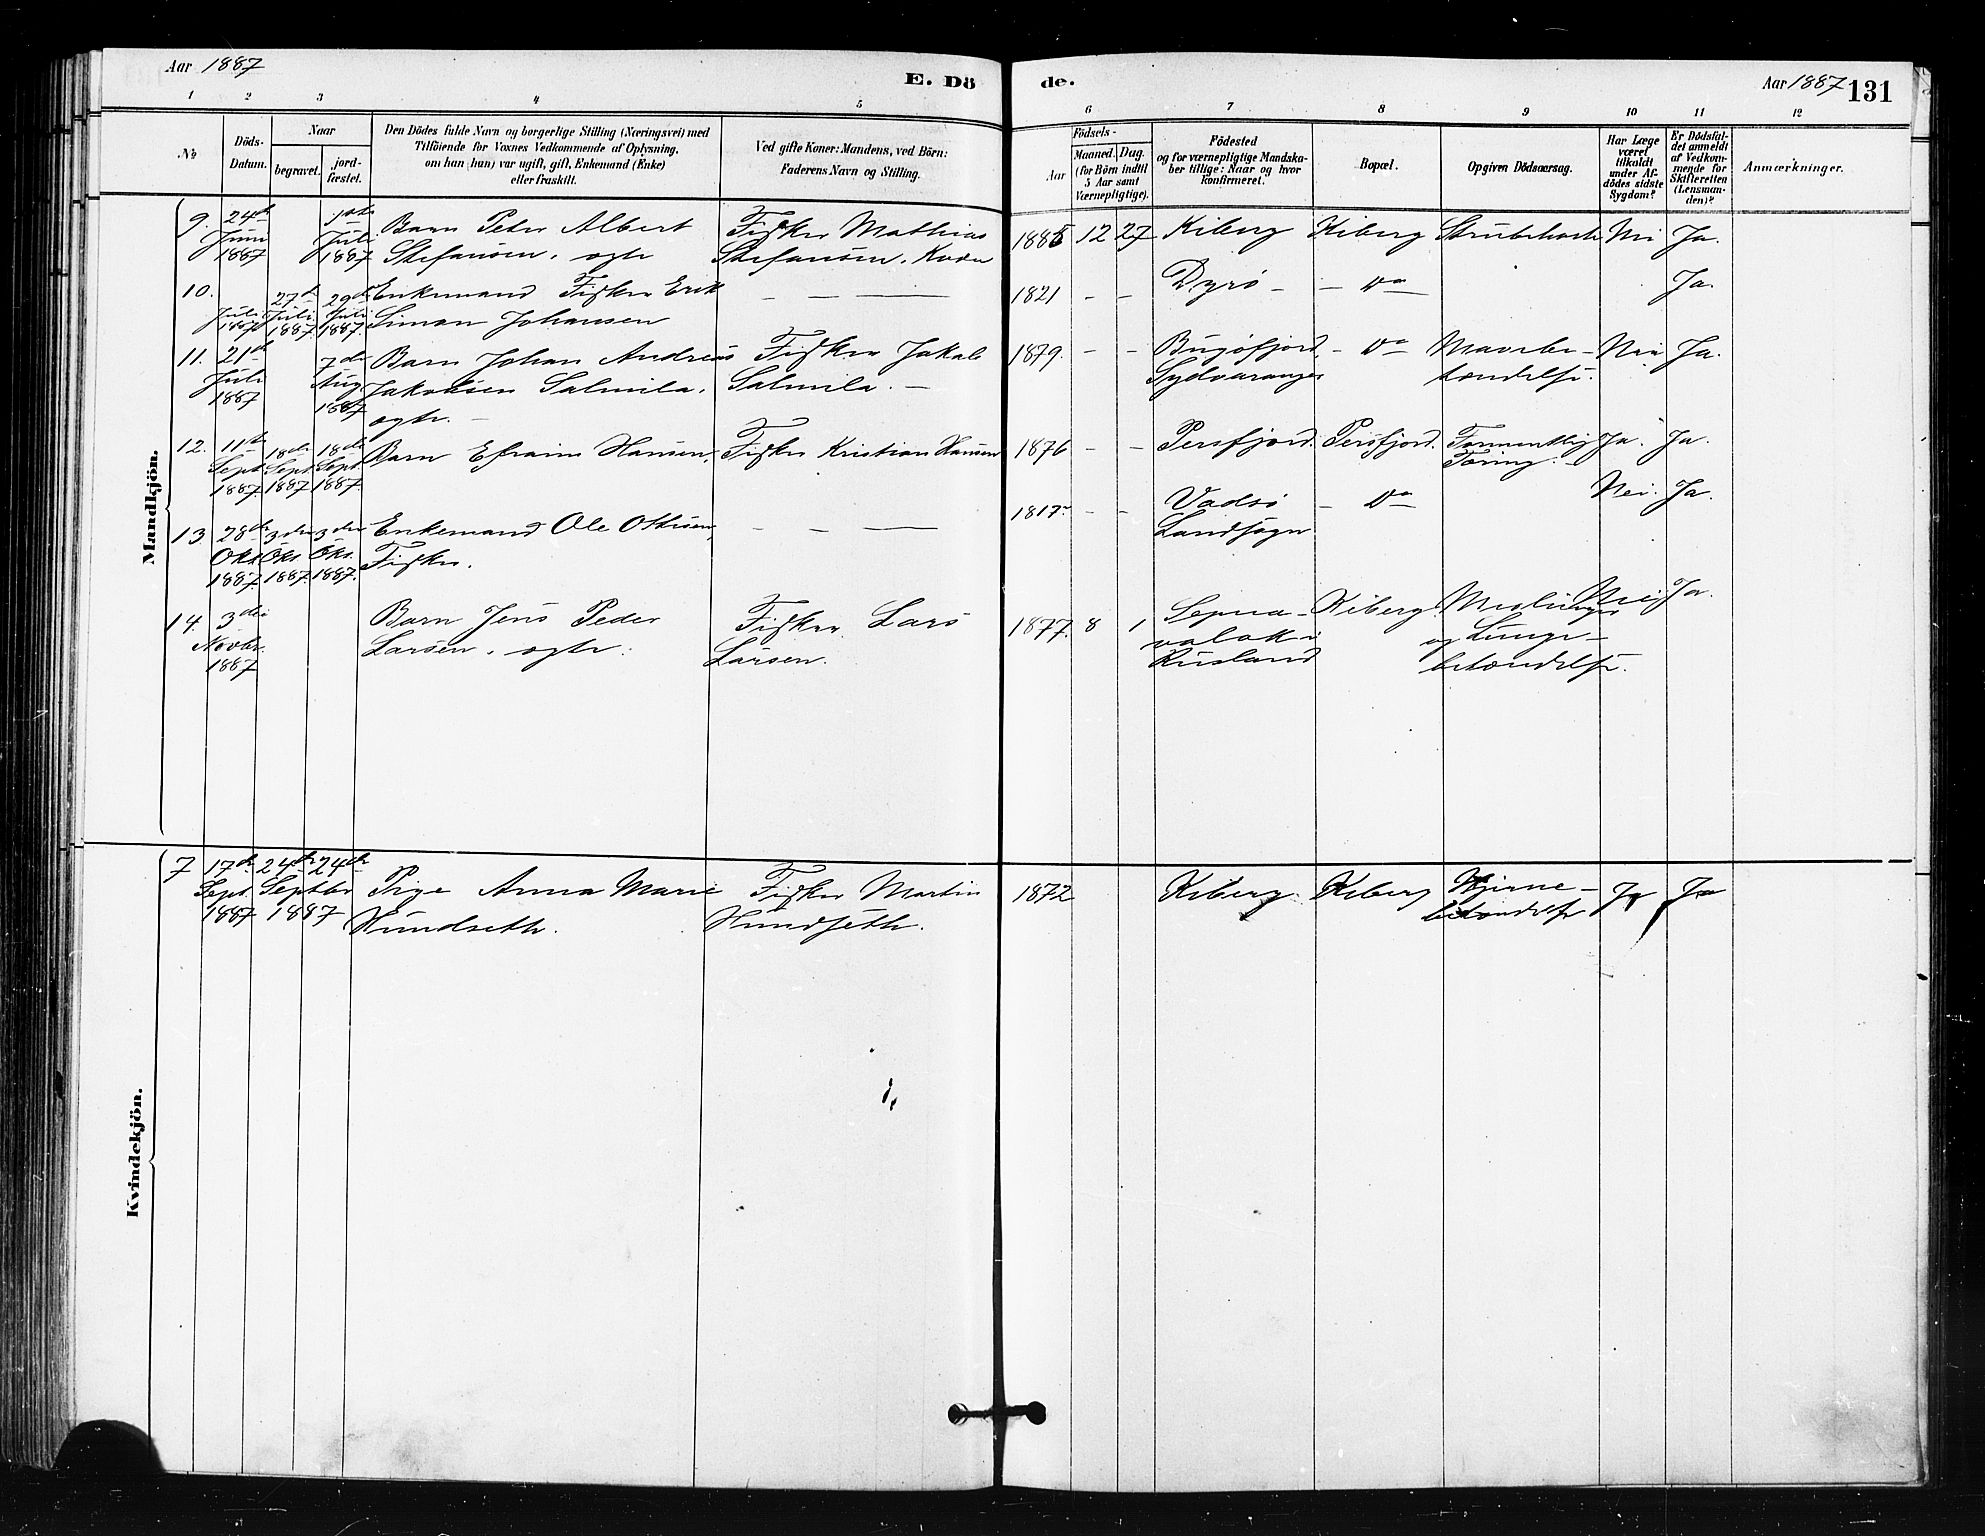 Aar 1887
E. Dö
de.
Aar 1887 131
1 2 3 4 5 6 7 8 9 10 11 12
No
Döds-
Datum.
Naar
begravet.
jord-
fæstet.
Den Dödes fulde Navn og borgerlige Stilling (Næringsvei) med
Tilföiende for Voxnes Vedkommende af Oplysning,
om han (hun) var ugift, gift, Enkemand (Enke)
eller fraskilt.
Ved gifte Koner: Mandens, ved Börn:
Faderens Navn og Stilling.
Födsels-
Aar
Maaned. Dag.
(for Börn indtil
5 Aar samt
Værnepligtige).
Födested
og for værnepligtige Mandska-
ber tillige: Naar og hvor
konfirmeret.
Bopæl.
Opgiven Dödsaarsag.
Har Læge
været
tilkaldt
under Af-
dödes sidste
Sygdom?
Er Dödsfal-
det anmeldt
af Vedkom-
mende for
Skifteretten
(Lensman-
den)?
Anmærkninger.
Mandkjön.
9. 24de 1ste Barn Peter Albert Fisker Mathias 1885 12 27 Kiberg Kiberg Strubehoste Nei Ja.
Juni Juli Stefansen. ægte Stefansen. Kvæn
1887 1887
10. 27de 29de Enkemand Fisker Erik — — — 1821 - - Dyrö - - Do Ja.
Juli Juli Juli Simon Johansen
1887 1887 1887.
11. 21de 7de Barn Johan Andreas Fisker Jakob 1879. - - Bugöfjord, - Do Mavebe- Nei Ja.
Juli Aug Jakobsen Salmila. Salmila. — Sydvaranger tændelse.
1887 1887 ægte. —
12. 11te 18de 18de Barn Efraim Hansen, Fisker Kristian Hansen 1876 - - Persfjord. Persfjord. Formentlig Ja. Ja.
Sept Sept Sept Tæring. -
1887. 1887 1887.
13 28de 3die 3die Enkemand Ole Ottesen, — — — 1817 - - Vadsö - Do Nei. Ja.
Okt Okt. Okt. Fisker. Landsogn
1887. 1887. 1887.
14. 3die Barn Jens Peder Fisker Lars 1877. 8 1 Kiberg. Meslinger Nei Ja.
Novbr. Larsen. ægte. Larsen. i og Lunge-
1887 Rusland betændelse.
Kvindekjön.
7 17de 24de 24de Pige Anna Marie Fisker Martin 1872 Kiberg. Kiberg Hjerne- Ja Ja
Sept. Septbr Hundseth. Hundseth. betændelse
1887 1887